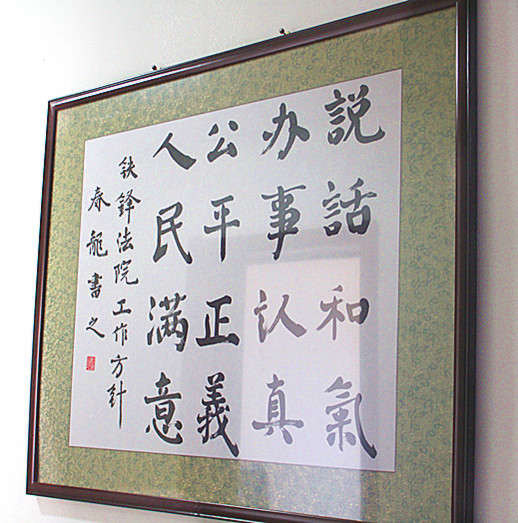 説話和氣
办事认真
公平正義
人民满意
铁鋒法院工作方針
春龍書之